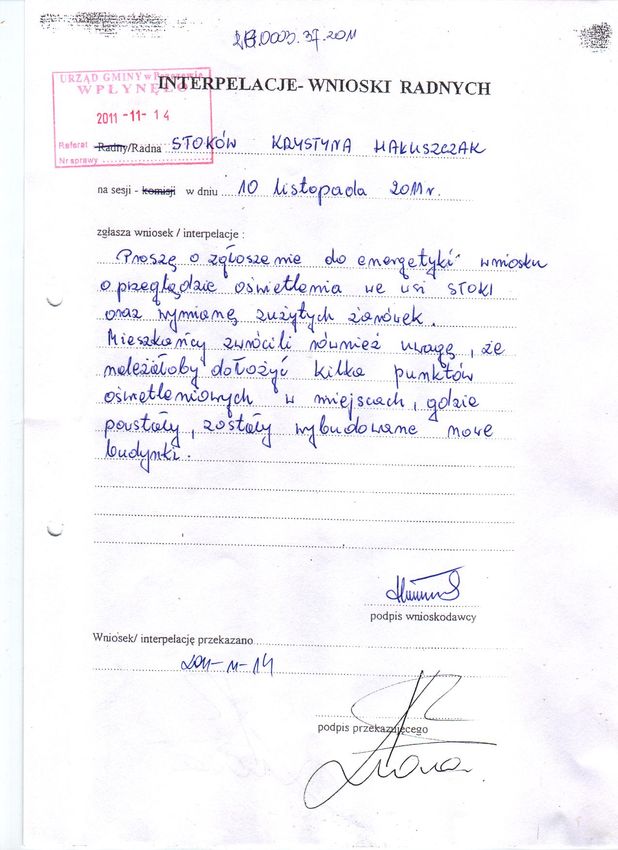 0003.37.2011
URZĄD GMINY
WPŁYNĘŁO
2011 -11- 14
Referat
Nr sprawy
INTERPELACJE- WNIOSKI RADNYCH
Radny/Radna STOKÓW KRYSTYNA MAKUSZCZAK
na sesji - komisji w dniu 10 listopada 2011 r.
zgłasza wniosek / interpelacje :
Proszę o zgłoszenie do energetyki wniosku
o przeglądzie oświetlenia we wsi STOKI
oraz wymianę zużytych żarówek.
Mieszkańcy zwrócili również uwagę, że
należałoby dołożyć kilka punktów
oświetleniowych w miejscach, gdzie
powstały, zostały wybudowane nowe
budynki.
podpis wnioskodawcy
Wniosek/ interpelację przekazano
2011-11-14
podpis przekazującego